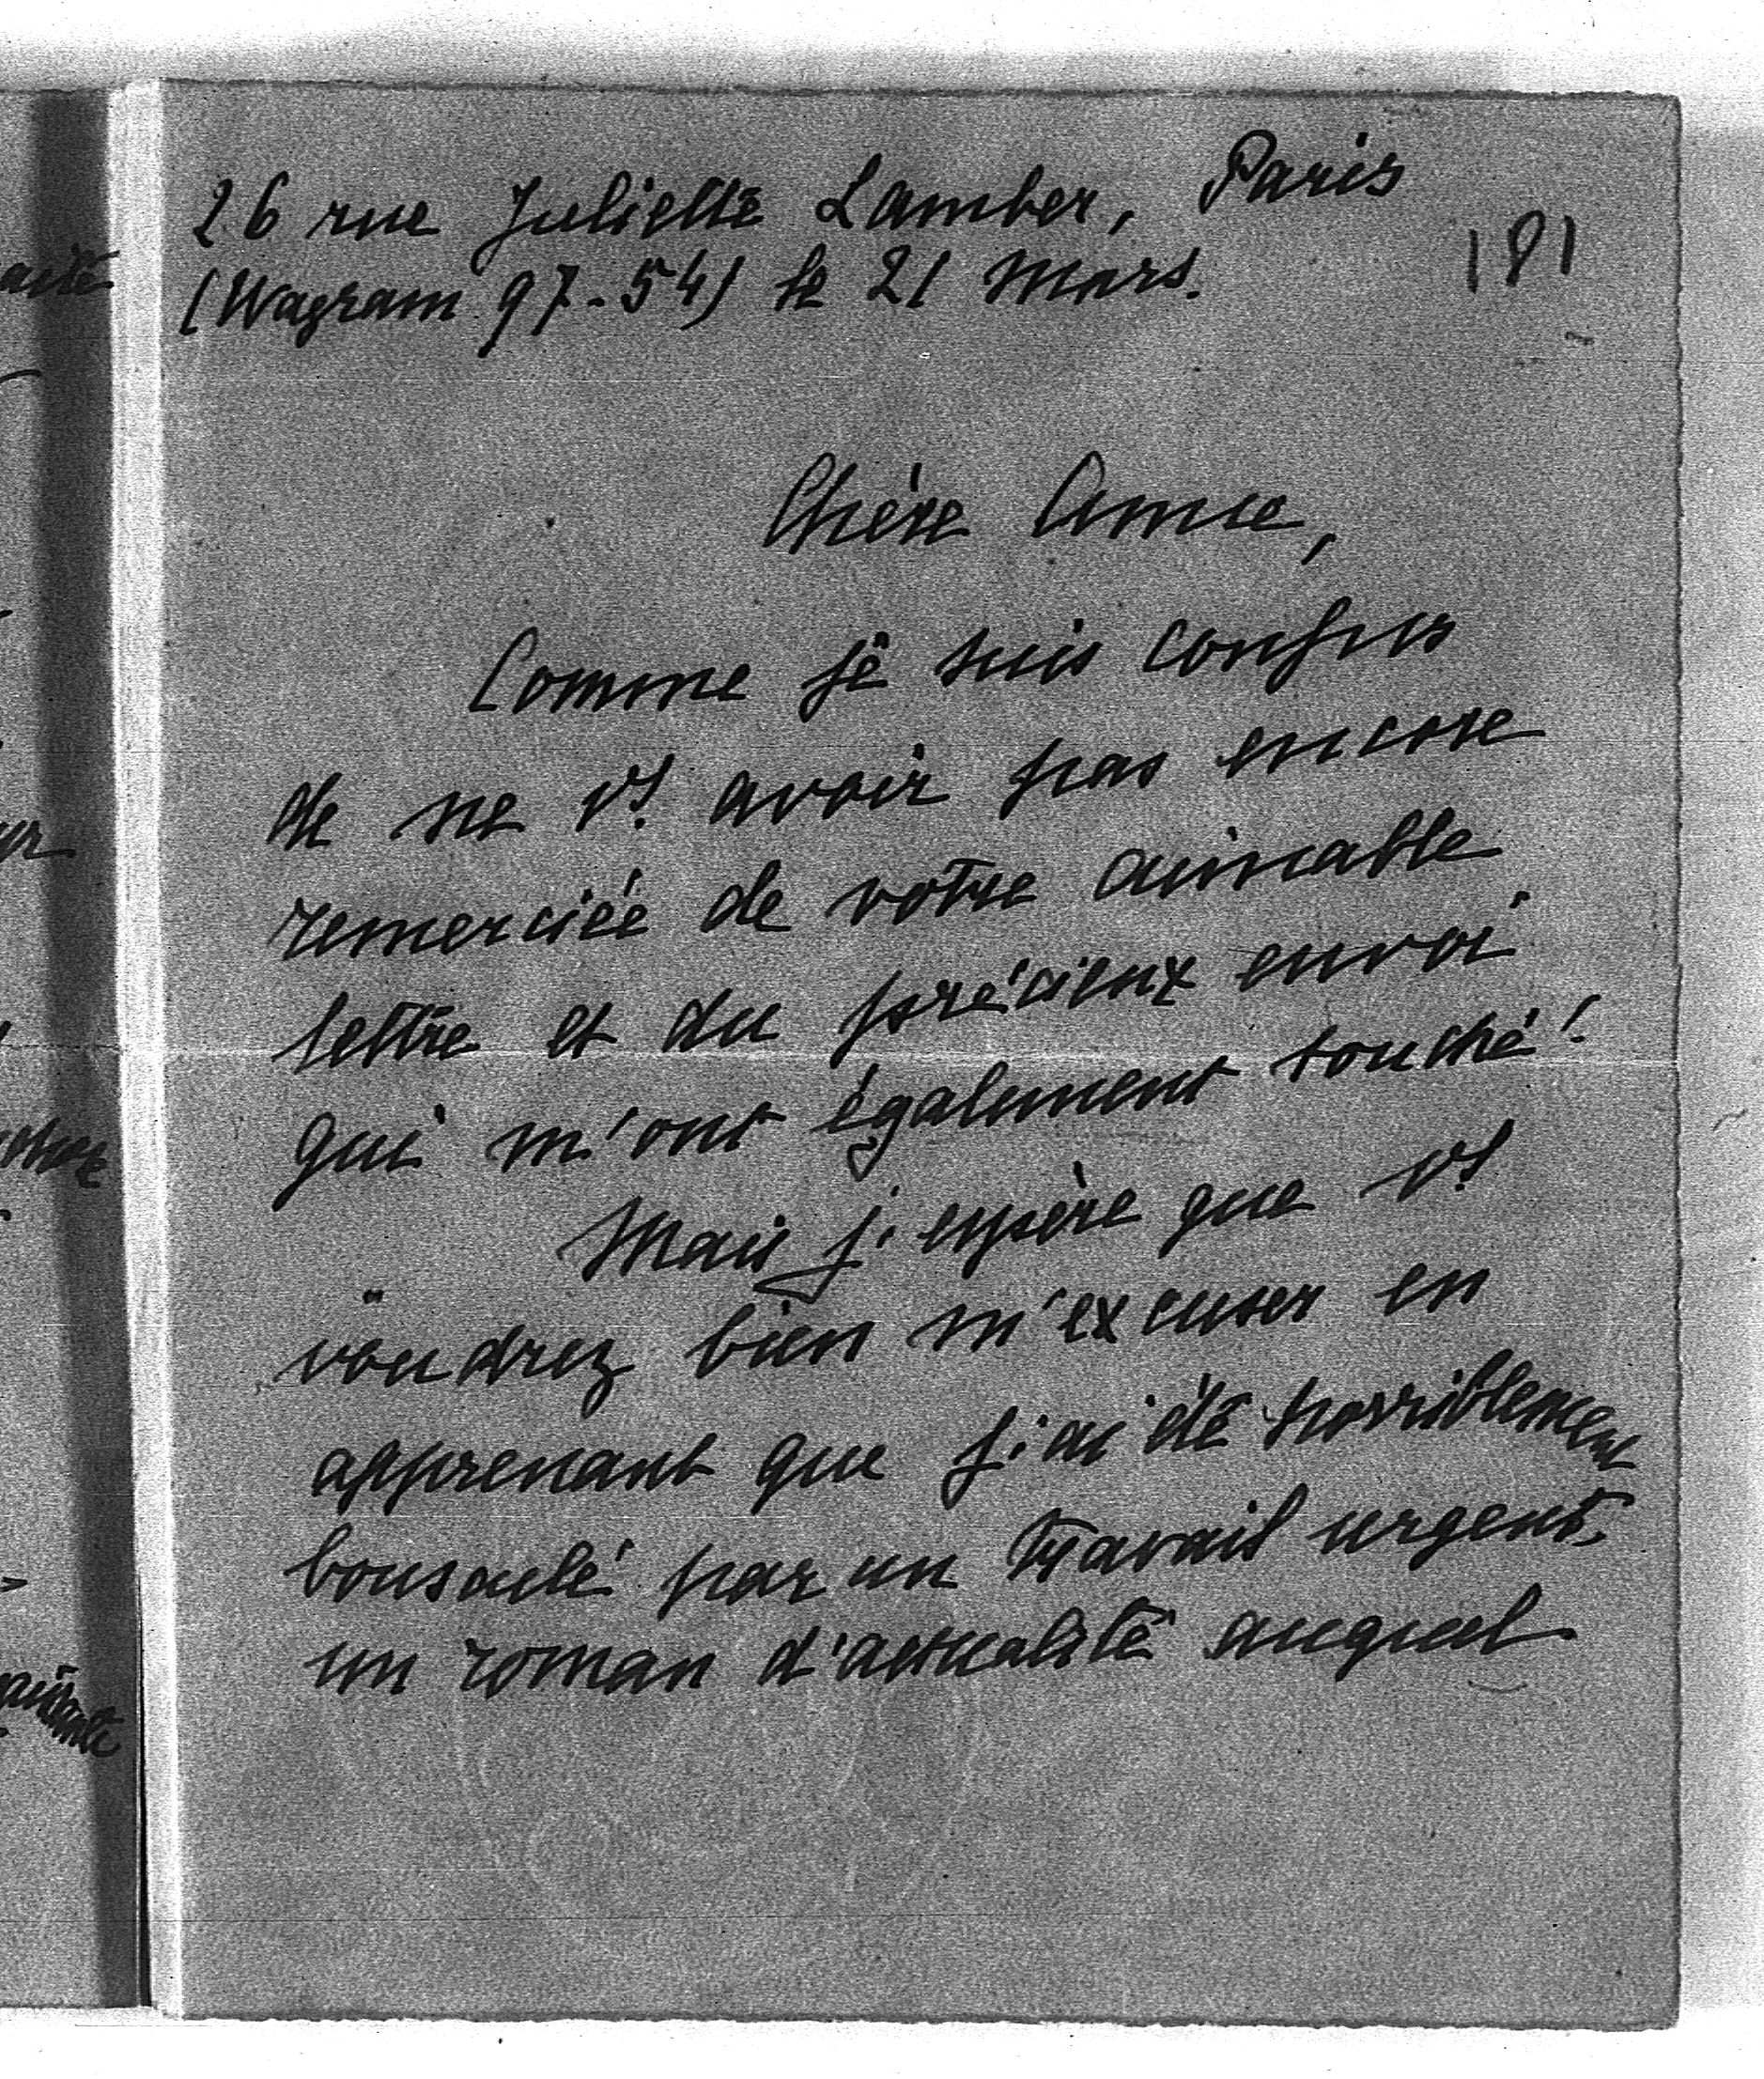 26 rue Juliette Lamber, Paris
(Wagram 97-54) le 21 Mars.
181
Chère Amie,
Comme je suis confus
de ne vs. avoir pas encore
remerciée de votre aimable
lettre et du précieux envoi
qui m'ont également touché!
Mais j'espère que vs
voudrez bien m'excuser en
apprenant que j'ai été horriblement
bousculé par un travail urgent,
un roman d'actualité auquel